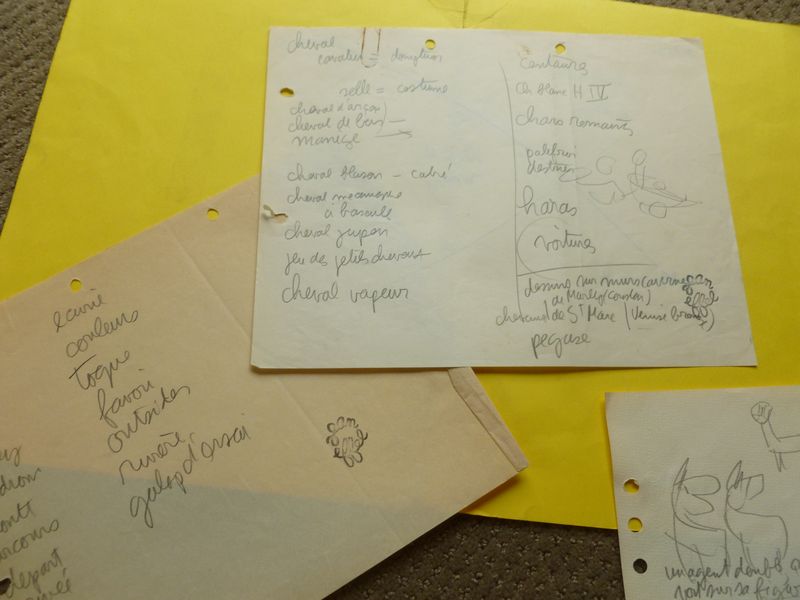 cheval
cavalier = dompteur
selle = costume
cheval d'arçon
cheval de bois
manège
cheval blason – cabré
cheval
à bascule
cheval jupon
jeu des petits chevaux
cheval vapeur
centaure
ch blanc H IV
chars romains
palefroi
destrier
haras
voitures
dessins sur murs
de Marly/Coustou)
chevaux/de St Marc / Venise
pegase
ecurie
couleurs
toque
favori
outsider
rivière
galop d'essai
depart
un agent